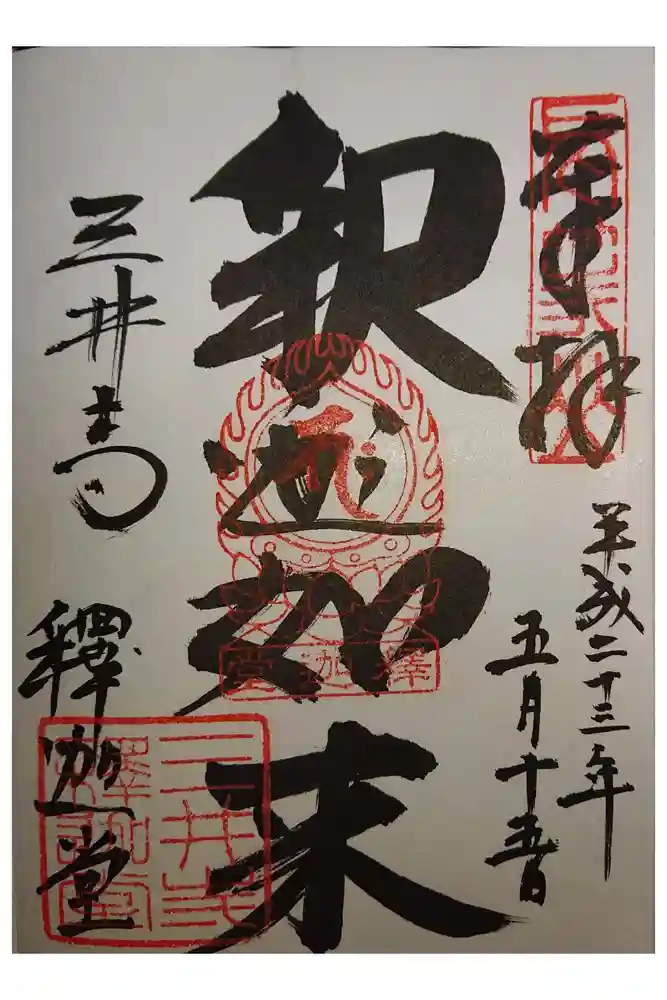 奉拝
平成二十三年
五月十五日
釈迦如来
釋迦堂
三井寺
釋迦堂
三井寺
釋迦堂